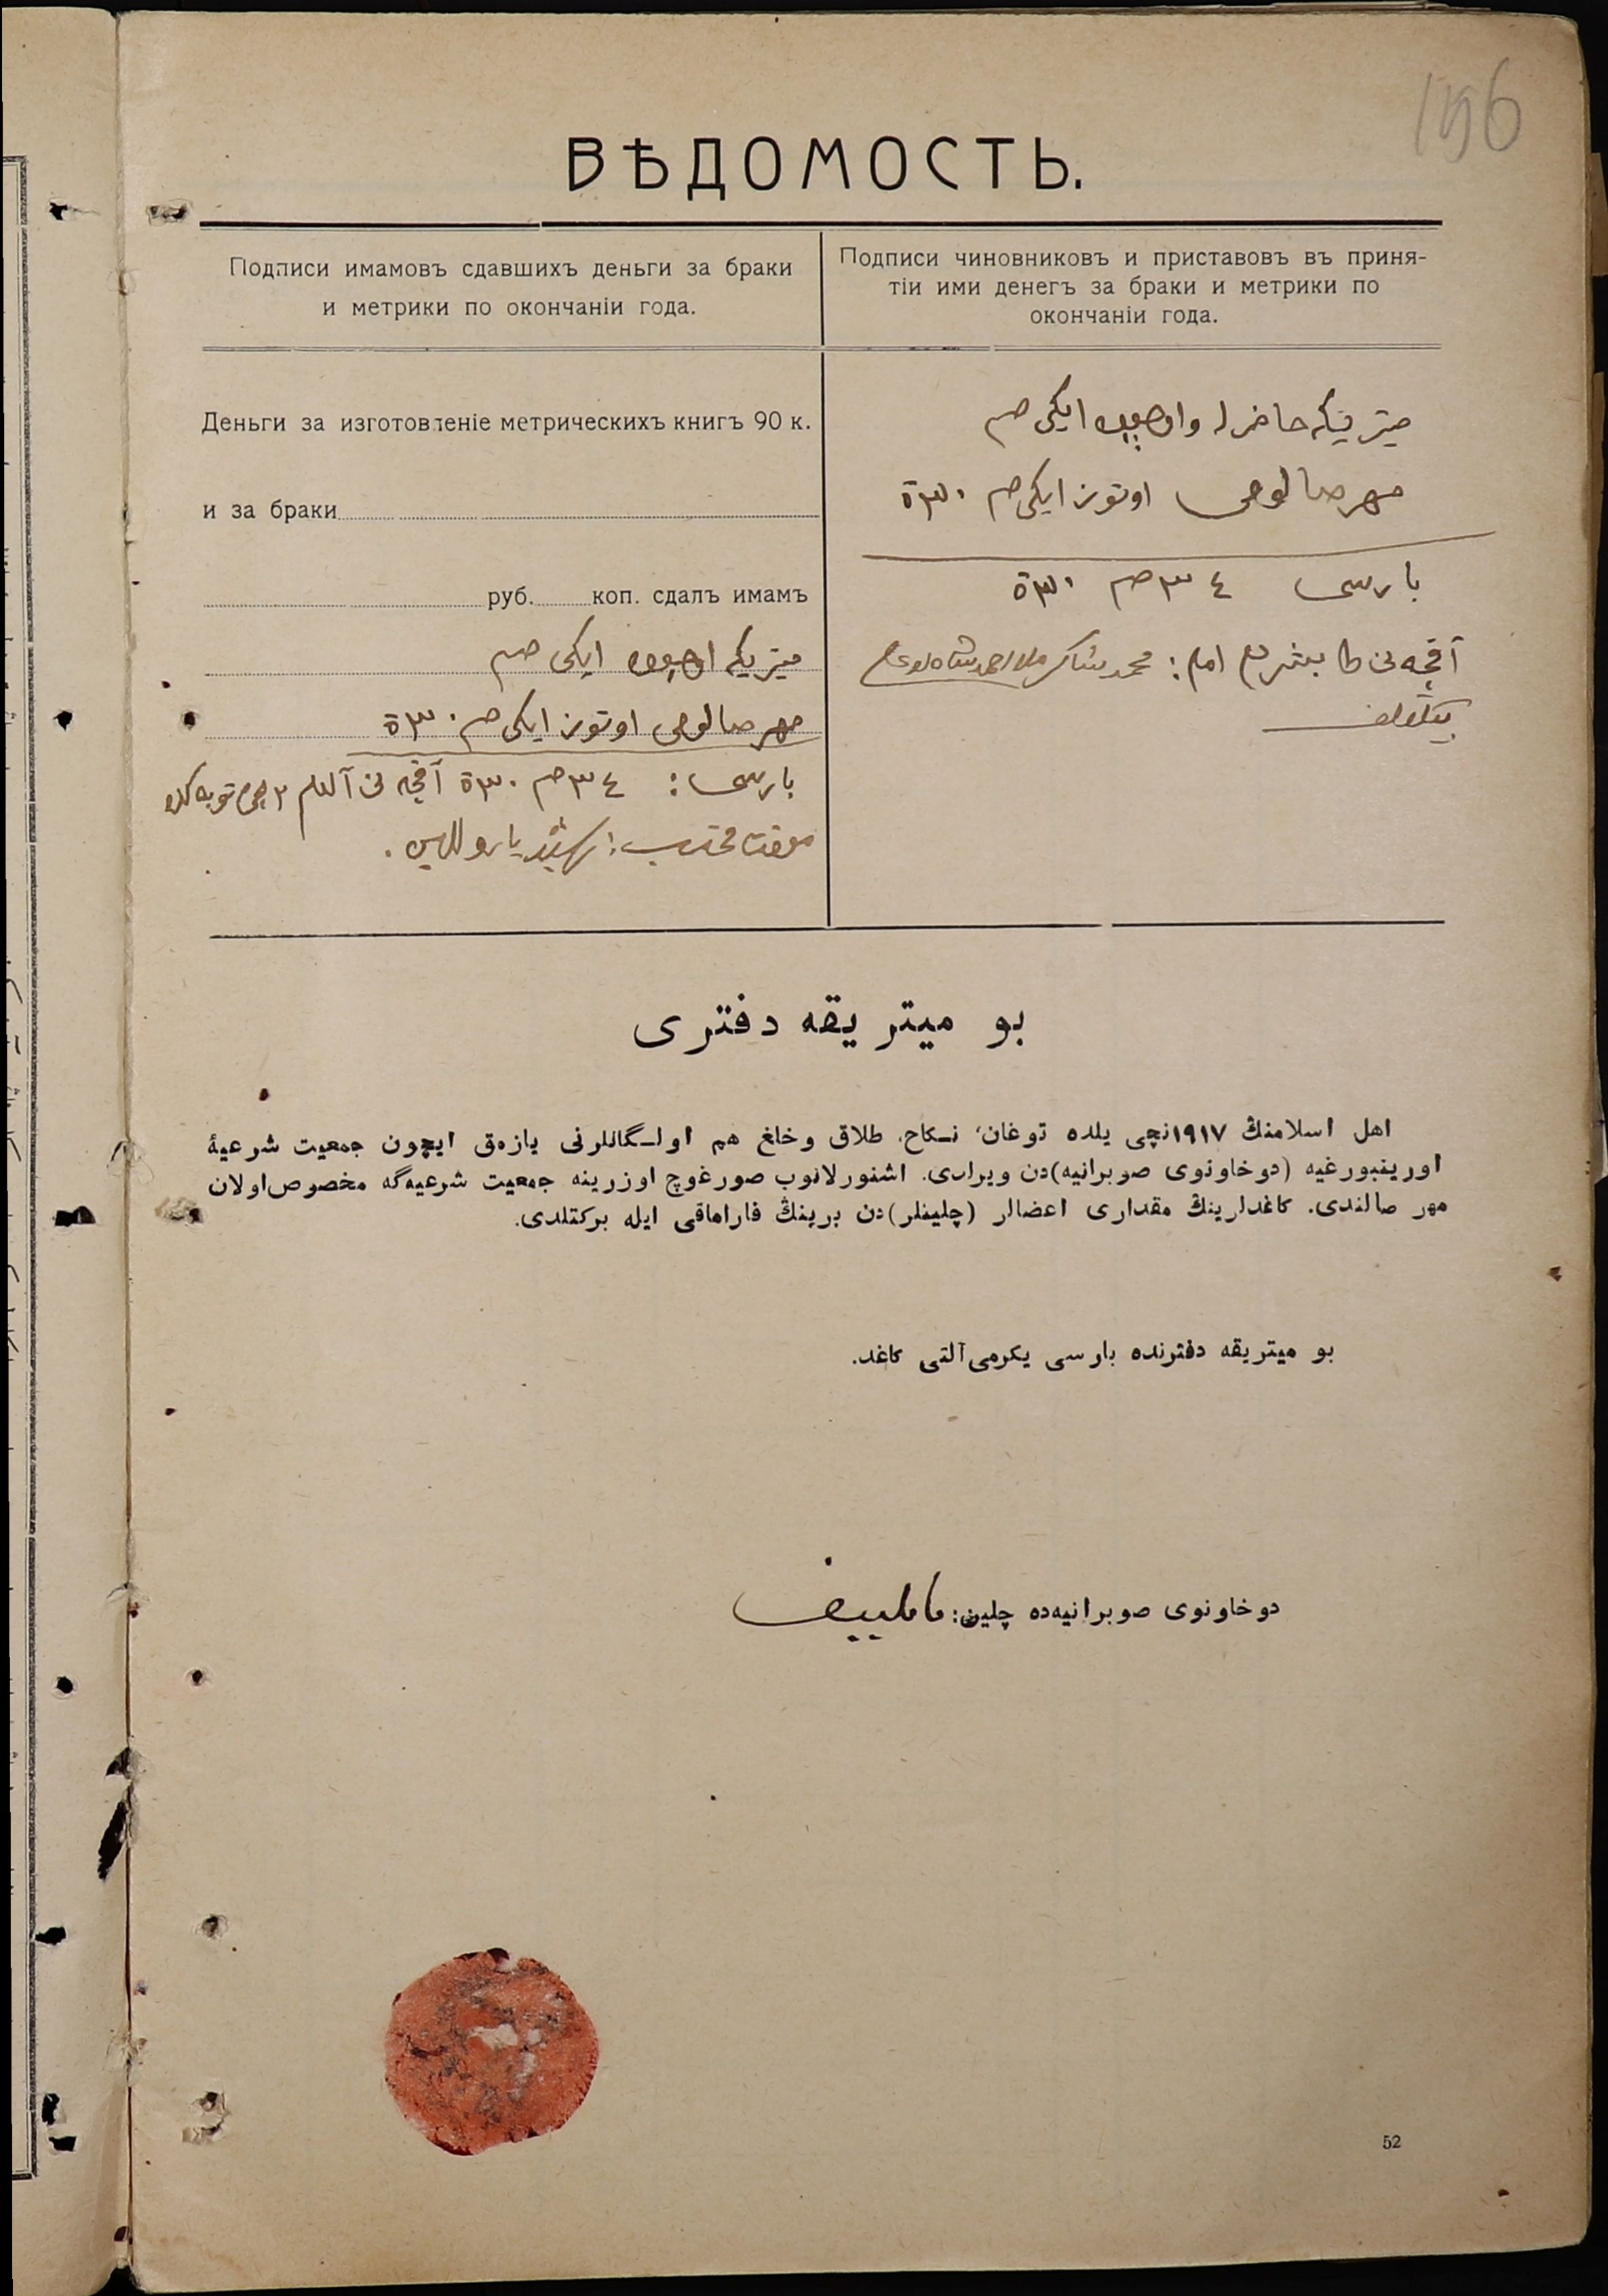 196
ВѢДОМОСТЬ.
Подписи имамовъ сдавшихъ деньги за браки
и метрики по окончаніи года.
Подписи чиновниковъ и приставовъ въ приня-
тіи ими денегъ за браки и метрики по
окончаніи года.
Деньги за изготовленіе метрическихъ книгъ 90 к.
и за браки
руб. коп. сдалъ имамъ
ايكی صم
مهر صالومی اوتوز ايكی صم ٣٠ ت
بارسی : ٣٤ صم ٣٠ ت آقچه نی آلدم
موقت محتسب :
ايكی صم
مهر صالومی اوتوز ايكی صم ٣٠ ت
بارسی ٣٤ صم ٣٠ ت
آقچه نی طابشردم امام : محمد شاكر ملا احمد
بو ميتريقه دفتری
اهل اسلامنڭ ١٩١٧نچی يلده توغان، نـكاح، طلاق وخلغ هم اولـگانلرنی يازمق ايچون جمعيت شرعيۀ
اورينبورغيه (دوخاونوی صوبرانيه)دن ويرلدی. اشنورلانوب صورغوچ اوزرينه جمعيت شرعيه‌گه مخصوص اولان
مهر صالندی. كاغدلارينڭ مقداری اعضالر (چلينلر)دن برينڭ قاراماقی ايله بركتلدی.
بو ميتريقه دفترنده بارسی يكرمی آلتی كاغد.
دوخاونوی صوبرانيه‌ده چلين: ماملييف
52